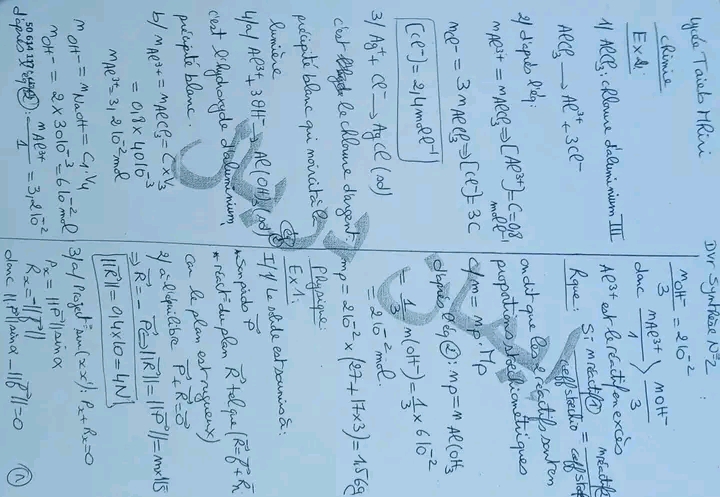 Lycée Taieb Mhiri
Dvr Synthèse N°2
Chimie
Ex 2:
1/ AlCl3: chlorure d'aluminium III
AlCl3 → Al3+ + 3Cl-
2/ d'après l'éq:
nAl3+ = nAlCl3 ⇒ [Al3+] = C = 0,8 mol.l-1
nCl- = 3nAlCl3 ⇒ [Cl-] = 3C
[Cl-] = 2,4 mol.l-1
3/ Ag+ + Cl- → AgCl (sd)
c'est le chlorure d'argent
précipité blanc qui noircit à la
lumière
4/a/ Al3+ + 3OH- → Al(OH)3 (sd)
c'est l'hydroxyde d'aluminium,
précipité blanc.
b/ nAl3+ = nAlCl3 = C x V3
= 0,8 x 40 10-3
nAl3+ = 3,2 10-2 mol
nOH- = nNaOH = C4.V4
nOH- = 2 x 30 10-3 = 6 10-2 mol
d'après éq ②: nAl3+/1 = 3,2 10-2
nOH-/3 = 2 10-2
donc nAl3+/1 > nOH-/3
Al3+ est le réactif en excès
Rque: Si n réactif①/coeff stoechio = n réactif/coeff stoe
on dit que les 2 réactifs sont en
proportions stoechiométriques
c/ m = mp . Mp
d'après éq ②: np = nAl(OH)3
= 1/3 n(OH-) = 1/3 x 6 10-2
= 2 10-2 mol
mp = 2 10-2 x (27 + 17x3) = 1,56g
Physique:
Ex 1:
I/1/ Le solide est soumis à:
* Son poids P
* réact° du plan R telque (R = f + RN
car le plan est rugueux)
2/ à l'équilibre P + R = 0
⇒ R = -P ⇒ ||R|| = ||P|| = mx||g
||R|| = 0,4 x 10 = 4N
3/a/ Project° sur (xx'): Px + Rx = 0
Px = ||P|| sin α
Rx = -||f||
donc ||P|| sin α - ||f|| = 0
①